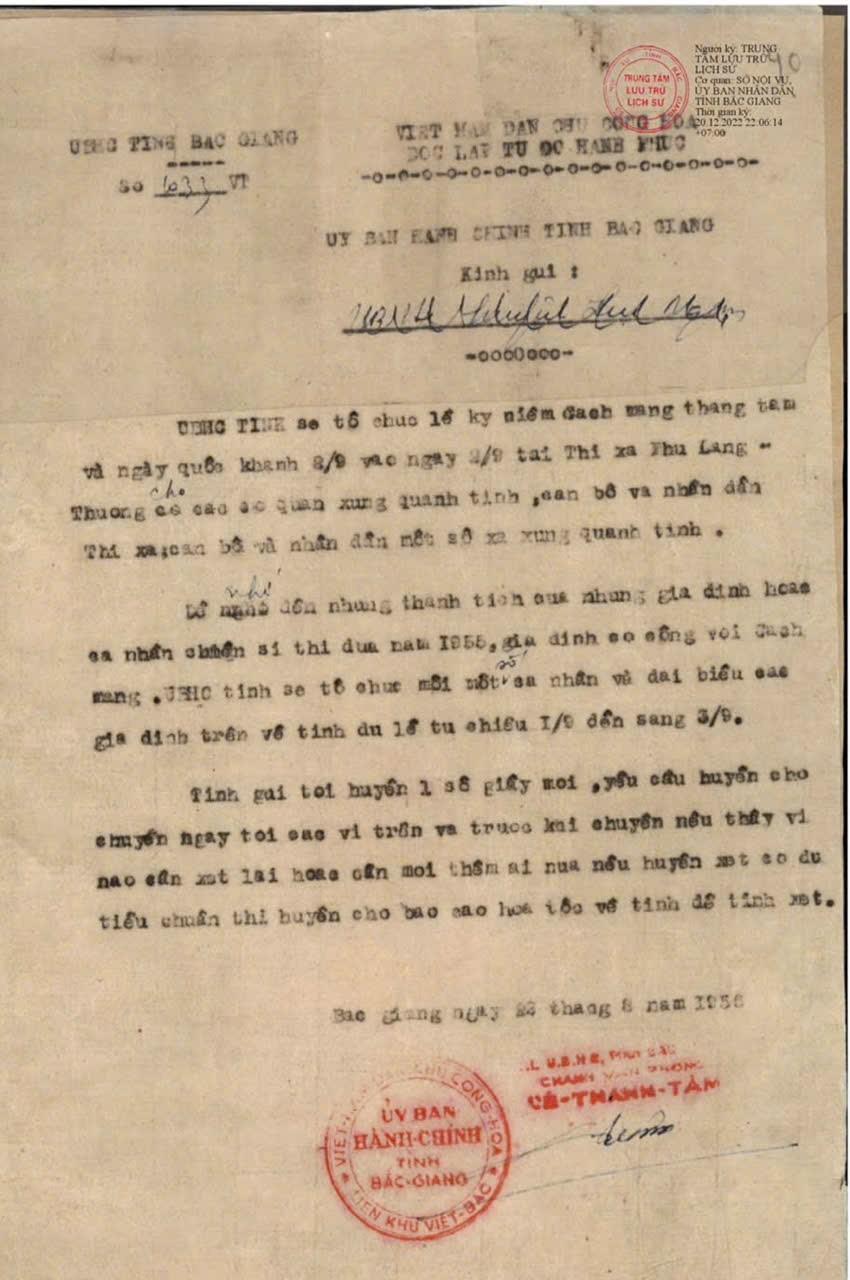 Người ký: TRUNG
TÂM LƯU TRỮ
LỊCH SỬ
Cơ quan: SỞ NỘI VỤ,
ỦY BAN NHÂN DÂN
TỈNH BẮC GIANG
Thời gian ký:
20.12.2022 22:06:14
+07:00
TRUNG TÂM
LƯU TRỮ
LỊCH SỬ
UBHC TINH BAC GIANG
Số 1633 VT
VIET NAM DAN CHU CONG HOA
DOC LAP TU DO HANH PHUC
UY BAN HANH CHINH TINH BAC GIANG
Kinh gui :
-oooOooo-
UBHC TINH se tổ chuc lễ ky niêm Cach mang thang tam
và ngày quốc khanh 2/9 vao ngay 2/9 tai Thi xa Phu Lang -
Thuong cho cac co quan xung quanh tinh ,can bô va nhân dân
Thi xa,can bô và nhân dân môt số xa xung quanh tinh .
Để nhớ đến nhung thanh tich cua nhung gia dinh hoac
ca nhân chiến si thi dua nam 1955,gia dinh co công voi Cach
mang .UBHC tinh se tổ chuc mời môt số ca nhân và dai biểu cac
gia dinh trên về tinh du lễ tu chiều 1/9 đến sang 3/9.
Tinh gui toi huyên 1 số giấy moi ,yêu cầu huyên cho
chuyển ngay toi cac vi trên va truoc khi chuyển nếu thấy vi
nao cần xet lai hoac cần moi thêm ai nua nếu huyên xet co du
tiêu chuẩn thi huyên cho bao cao hoa tốc về tinh để tinh xet.
Bac giang ngay 23 thang 8 nam 1956
CHANH VAN PHONG
LÊ-THANH-TÂM
VIỆT-NAM DÂN-CHỦ CỘNG-HÒA
ỦY BAN
HÀNH-CHÍNH
TỈNH
BẮC-GIANG
LIÊN KHU VIỆT-BẮC